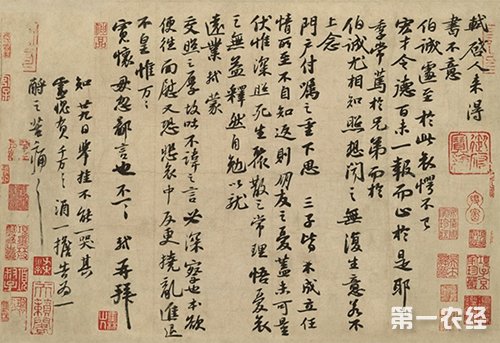 軾啓人來得
書不意
伯誠遽至於此哀愕不已
宏才令德百未一報而止於是耶
季常篤於兄弟而於
伯誠尤相知照想聞之無復生意若不
上念
門戶付囑之重下思三子皆不成立任
情所至不自知返則朋友之憂蓋未可量
伏惟深照死生聚散之常理悟憂哀
之無益釋然自勉以就
遠業軾蒙
交照之厚故吐不諱之言必深察也本欲
便往面慰又恐悲哀中反更撓亂進退
不皇惟萬萬
寬懷毋忽鄙言也不一一軾再拜
知廿九日舉掛不能一哭其
靈愧負千萬千萬酒一擔告為一
酹之苦痛苦痛
第一农经